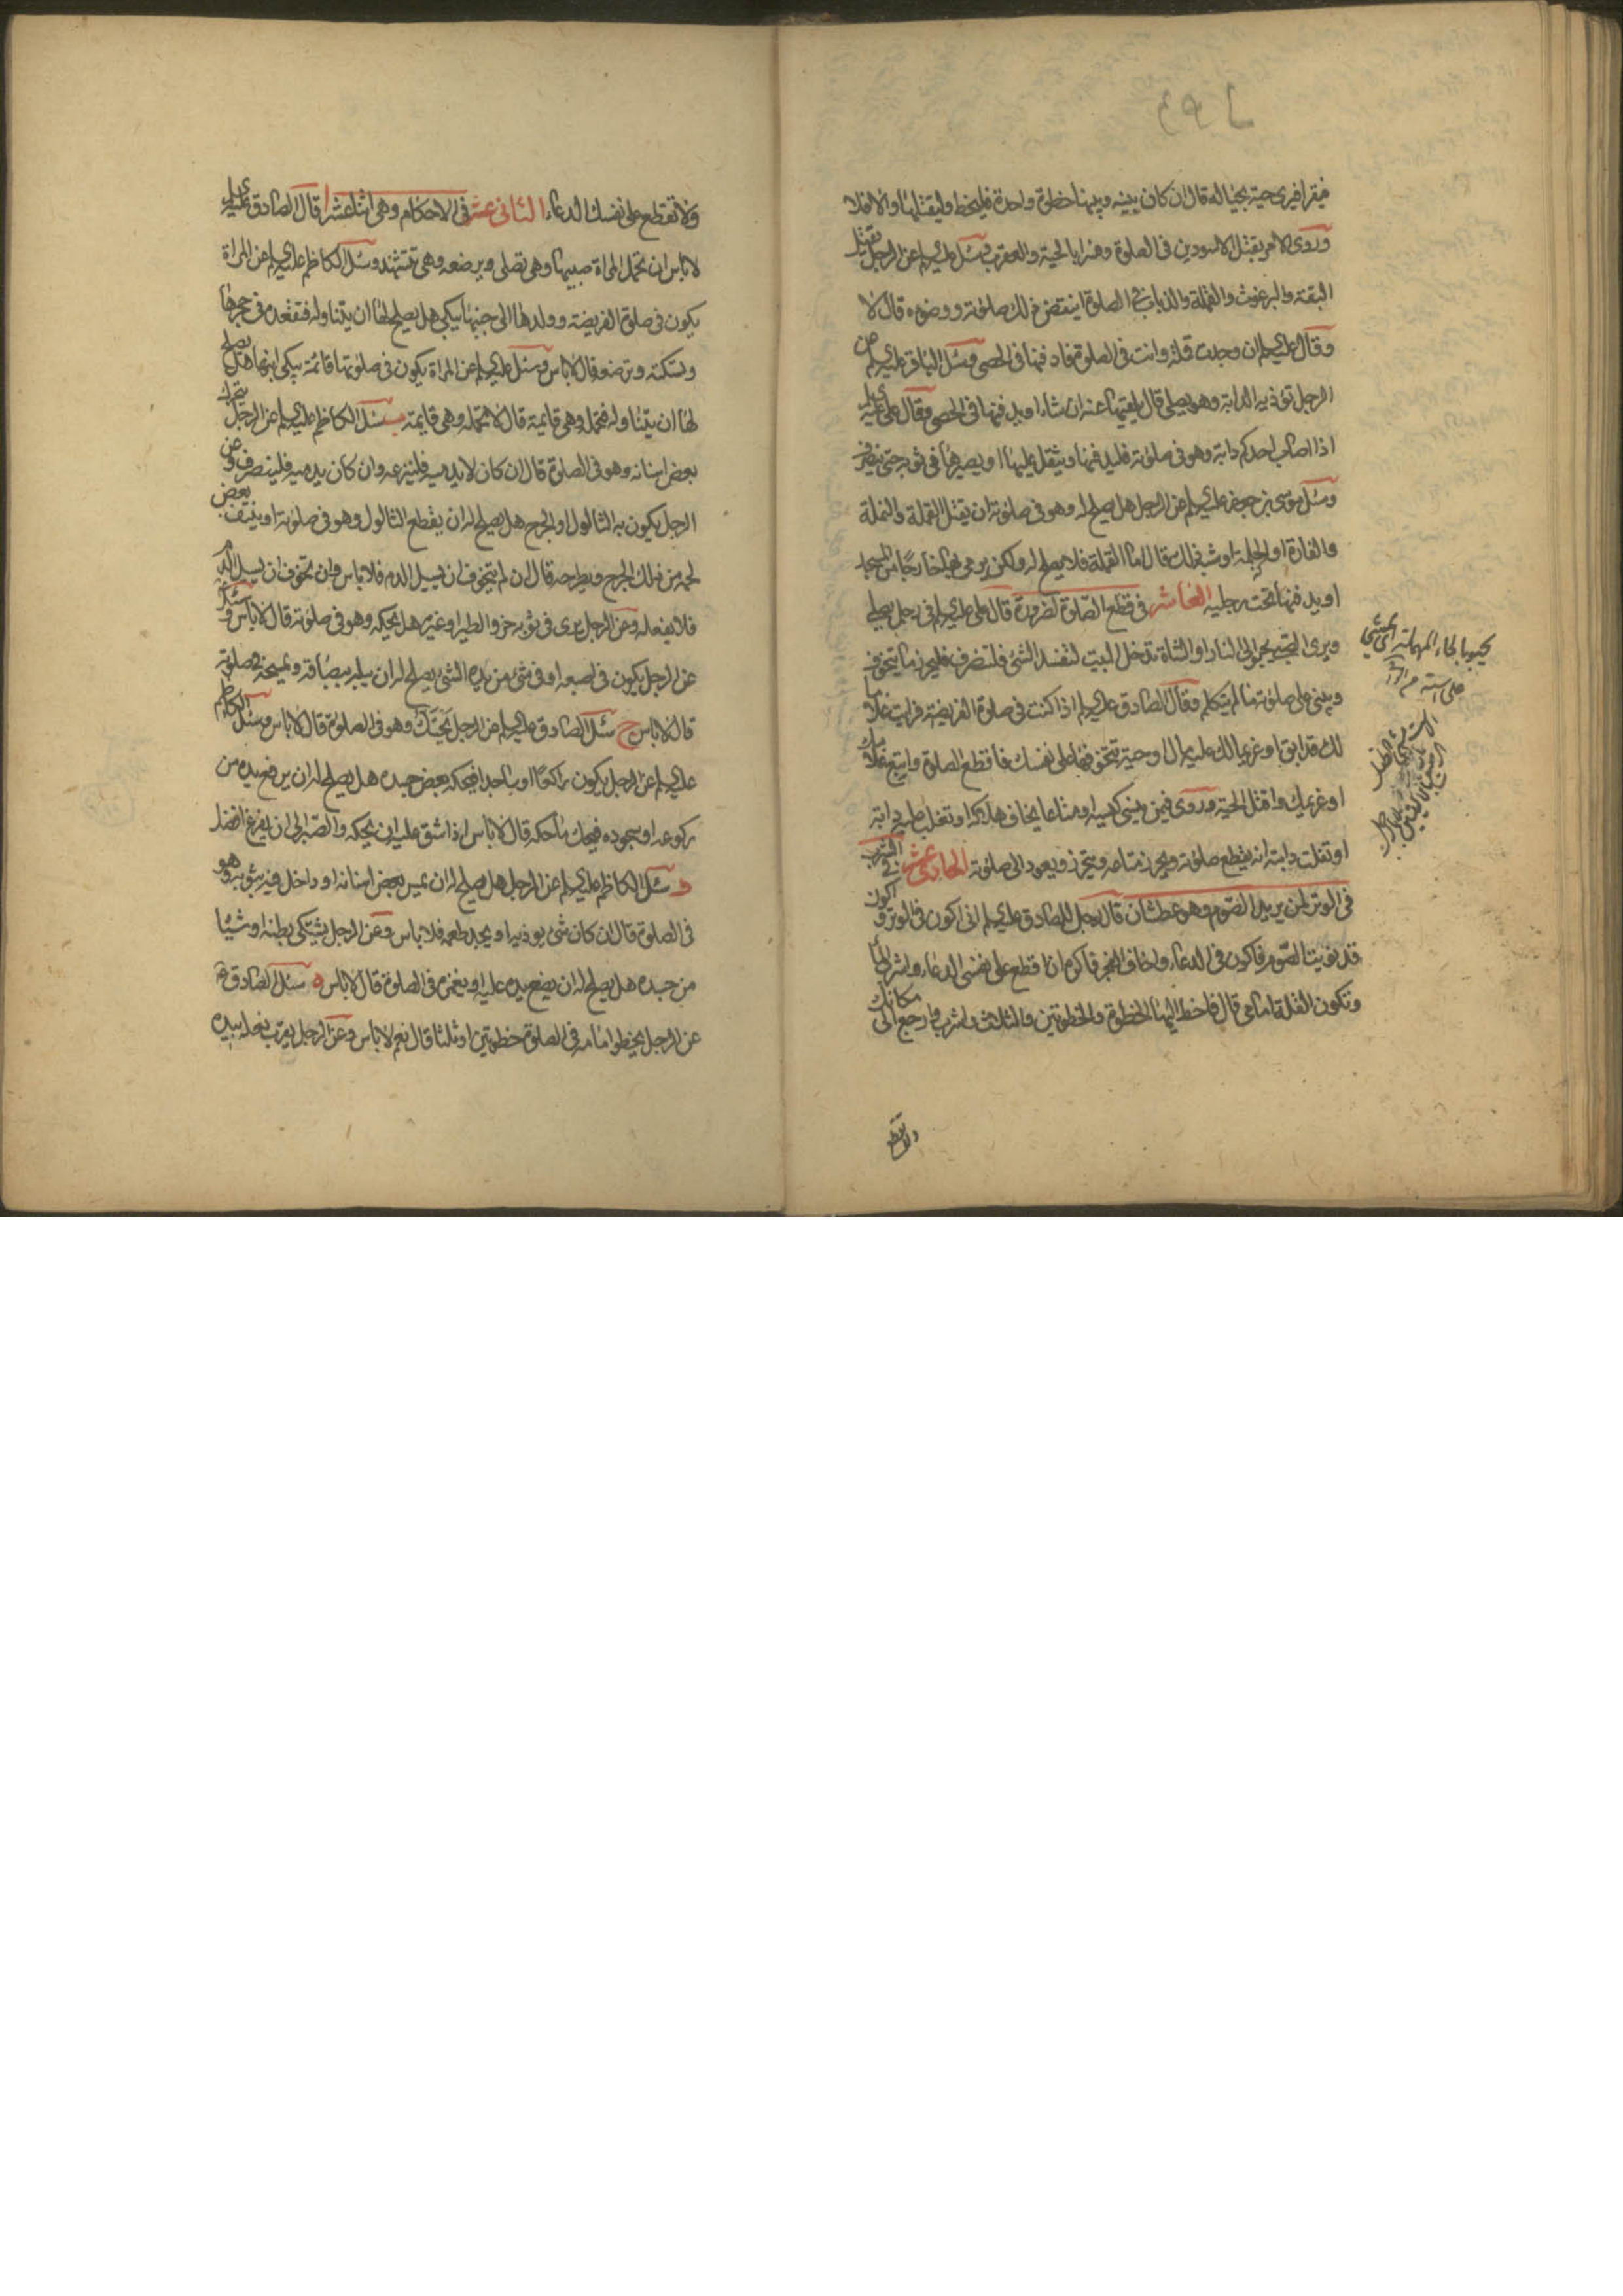 فيقرا فيرى حية بحياله قال ان كان بينه وبينها خطوة واحدة فليخط وليقتلها والا فلا
وروى الامر بقتل الاسودين في الصلوة وفسرا بالحية والعقرب وسئل عليه السلم عن الرجل يقتل
البقة والبرغوث والقملة والذباب في الصلوة اينقض ذلك صلوته ووضوءه قال لا
وقال عليه السلم ان وجدت قملة وانت في الصلوة فادفنها في الحصى وسئل الباقر عليه السلم عن
الرجل تؤذيه الدابة وهو يصلى قال يلقيها عنه ان شاء او يدفنها في الحصى وقال على عليه السلم
اذا اصاب احدكم دابة وهو في صلوته فليدفنها ويتفل عليها او يصيرها في ثوبه حتى ينصرف
وسئل موسى بن جعفر عليه السلم عن الرجل هل يصلح له وهو في صلوته ان يقتل القملة والنملة
والفارة او الحلمة او شبه ذلك قال اما القملة فلا يصلح له ولكن يرمى بها خارجا من المسجد
او يدفنها تحت رجليه العاشر في قطع الصلوة لضرورة قال على عليه السلم في رجل يصلى
ويرى الصبى يحبو الى النار او الشاة تدخل البيت لتفسد الشئ فلينصرف فليحرز ما يتخوف
ويبنى على صلوته ما لم يتكلم وقال الصادق عليه السلم اذا كنت في صلوة الفريضة فرايت غلاما
لك قد ابق او غريما لك عليه مال او حية تتخوفها على نفسك فاقطع الصلوة واتبع غلامك
او غريمك واقتل الحية وروى فيمن ينسى كيسه او متاعا يخاف هلاكه او تغلب عليه دابة
او تفلت دابته انه يقطع صلوته ويحرز متاعه ويتحرز ويعود الى صلوته الحادى عشر في الشرب
في الوتر لمن يريد الصوم وهو عطشان قال رجل للصادق عليه السلم انى اكون في الوتر واكون
قد نويت الصوم فاكون في الدعاء واخاف الفجر فاكره ان اقطع على نفسى الدعاء واشرب الماء
وتكون القلة امامى قال فاخط اليها الخطوة والخطوتين والثلاث واشرب وارجع الى مكانك
ولا تقطع
يحبو بالحاء المهملة اى يمشى
على استه
ولا تقطع على نفسك الدعاء الثانى عشر في الاحكام وهى اثنا عشر ا قال الصادق عليه السلم
لا باس ان تحمل المراة صبيها وهى تصلى وترضعه وهى تتشهد وسئل الكاظم عليه السلم عن المراة
تكون في صلوة الفريضة وولدها الى جنبها يبكى هل يصلح لها ان يتناوله فتقعده في حجرها
وتسكته وترضعه قال لا باس وسئل عليه السلم عن المراة تكون في صلوتها قائمة يبكى ابنها هل يصلح
لها ان تتناوله فتحمله وهى قايمة قال لا تحمله وهى قايمة ب سئل الكاظم عليه السلم عن الرجل يتحرك
بعض اسنانه وهو في الصلوة قال ان كان لا يدميه فلينزعه وان كان يدميه فلينصرف وعن
الرجل يكون به الثالول او الجرح هل يصلح له ان يقطع الثالول وهو في صلوته او ينتف بعض
لحمه من ذلك الجرح ويطرحه قال ان لم يتخوف ان يسيل الدم فلا باس وان تخوف ان يسيل الدم
فلا يفعله وعن الرجل يرى في ثوبه خرؤ الطير او غيره هل يحكه وهو في صلوته قال لا باس وسئل
عن الرجل يكون في اصبعه او في شئ من يده الشئ يصلح له ان يبله ببصاقه ويمسحه في صلوته
قال لا باس ج سئل الصادق عليه السلم عن الرجل يحتك وهو في الصلوة قال لا باس وسئل الكاظم
عليه السلم عن الرجل يكون راكعا او ساجدا فيحكه بعض جسده هل يصلح له ان يرفع يده من
ركوعه او سجوده فيحك ما حكه قال لا باس اذا شق عليه ان يحكه والصبر الى ان يفرغ افضل
د سئل الكاظم عليه السلم عن الرجل هل يصلح له ان يمس بعض اسنانه او داخل فيه بثوبه وهو
في الصلوة قال ان كان شئ يوذيه او يجد طعمه فلا باس وعن الرجل يشتكى بطنه او شيئا
من جسده هل يصلح له ان يضع يده عليه او يغمزه في الصلوة قال لا باس ه سئل الصادق ع
عن الرجل يخطو امامه في الصلوة خطوتين او ثلثا قال نعم لا باس وعن الرجل يقرب نعله بيده